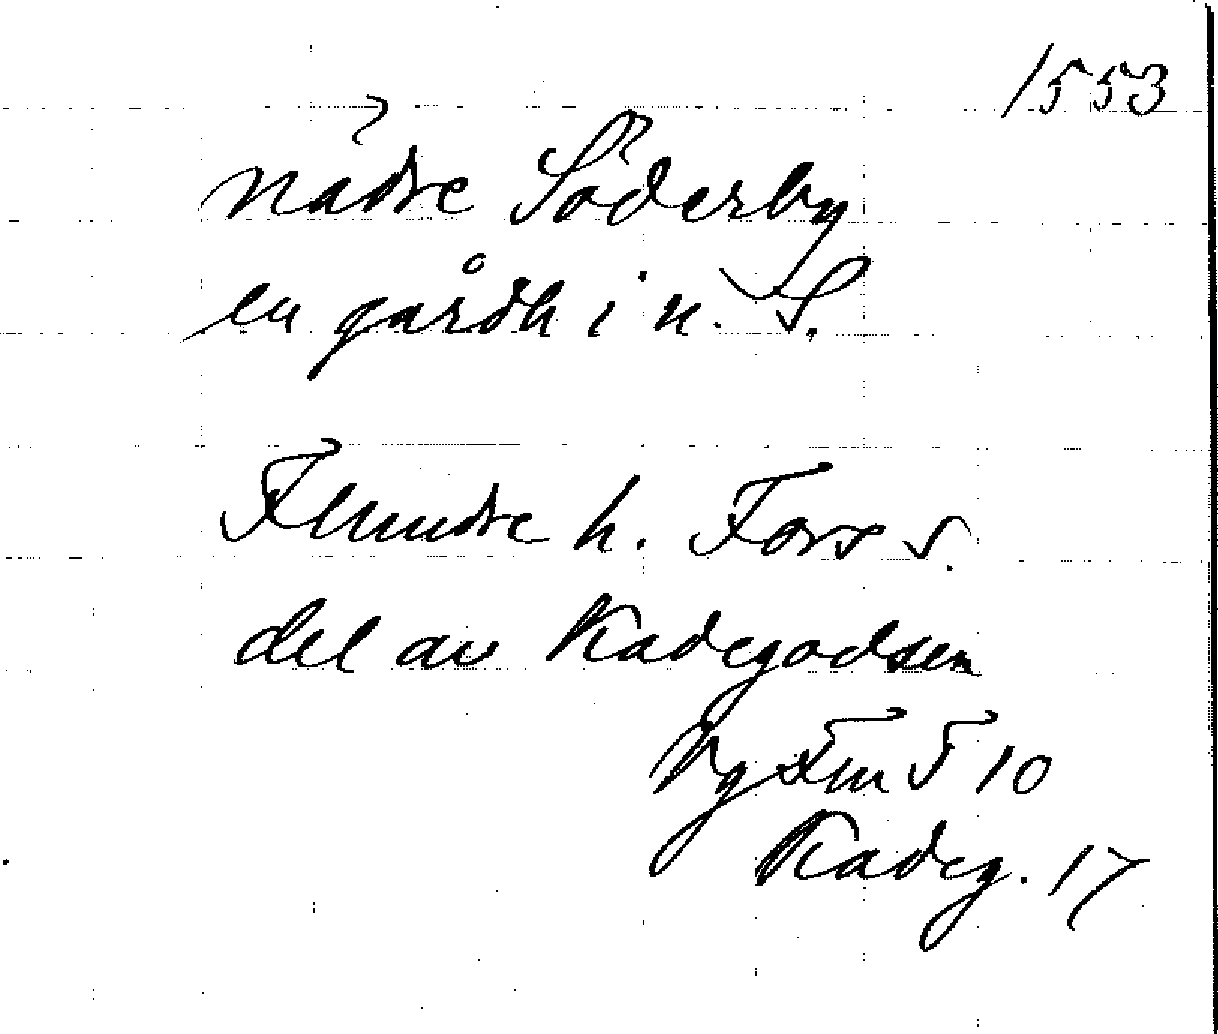 1553
nädre Söderby
en gårdh i n. S.
Flundre h. Fors s.
del av Kadegodsen
Kg Fm F 10
Kadeg. 17